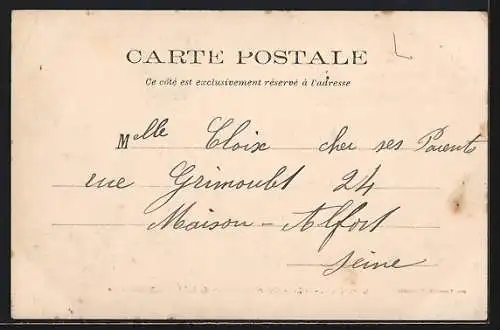 CARTE POSTALE
Ce côté est exclusivement réservé à l'adresse
Mlle Cloix chez ses Parents
rue Grimoult 24
Maison-Alfort
Seine